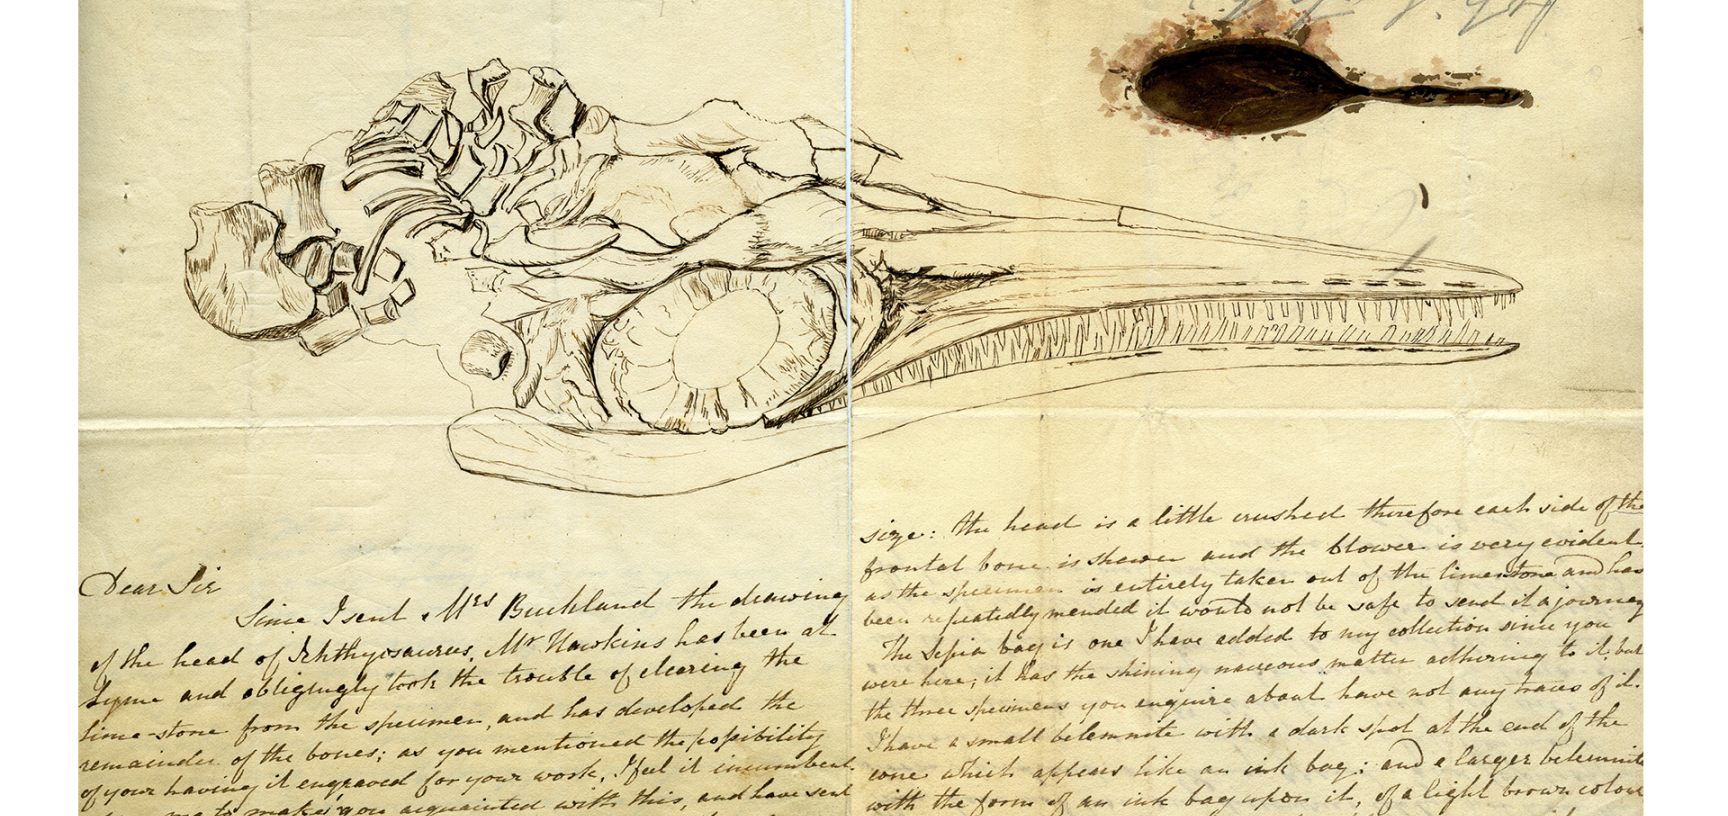 Dear Sir
Since I sent Mrs Buckland the drawing
of the head of Ichthyosaurus, Mr Hawkins has been at
Lyme and obligingly took the trouble of clearing the
lime-stone from the specimen, and has developed the
remainder of the bones; as you mentioned the possibility
of your having it engraved for your work, I feel it incumbent
me to make you acquainted with this, and have sent
size: the head is a little crushed therefore each side of the
frontal bone is shewn and the blower is very evident.
as the specimen is entirely taken out of the limestone and has
been repeatedly mended it would not be safe to send it a journey
The Sepia bag is one I have added to my collection since you
were here; it has the shining nacreous matter adhering to it, but
the three specimens you enquire about have not any traces of it.
I have a small belemnite with a dark spot at the end of the
cone which appears like an ink bag; and a larger belemnite
with the form of an ink bag upon it, of a light brown colour